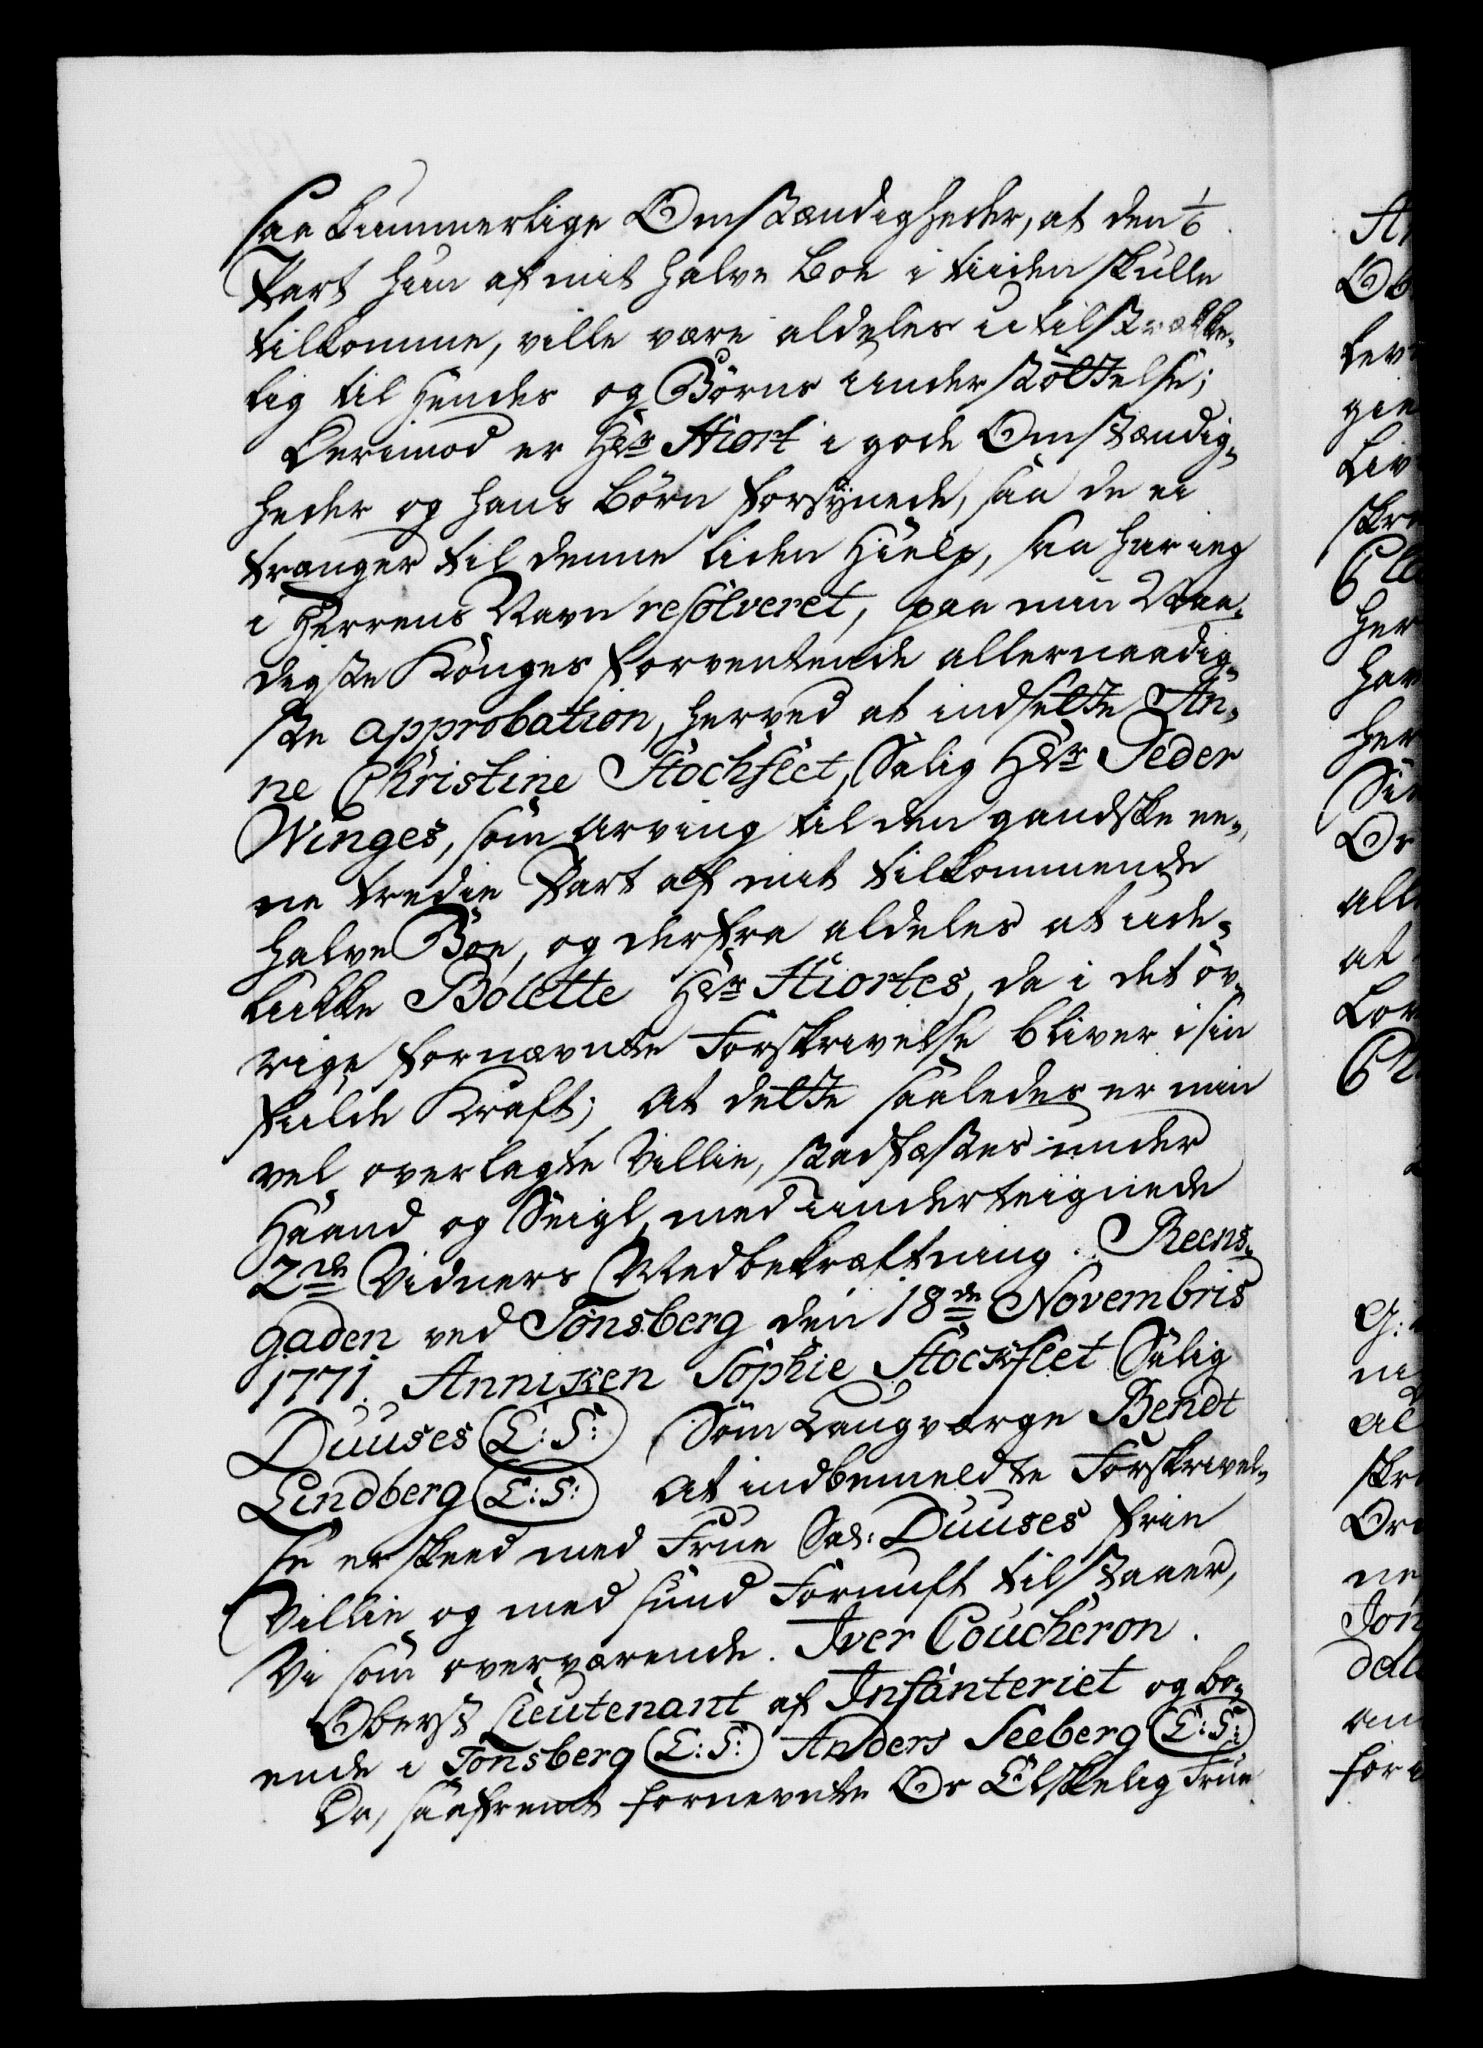 saa kummerlige Omstændigheder, at den 1/6
Part hun af mit halve Boe i tiiden skulle
tilkomme, ville være aldeles utilstrække-
lig til Hendes og Börns Understöttelse;
Derimod er Hr Hiort i gode Omstændig-
heder og hans Börn forsÿnede, saa de ei
trænger til denne liden Hielp, saa har ieg
i Herrens Navn resolveret, paa min Naa-
digste Konges forventende allernaadig-
ste approbation, herved at indsætte An-
ne Christine Stochfleet, Salig Hr Peder
Winges, som Arving til den gandske ee-
ne tredie Part af mit tilkommende
halve Boe, og derfra aldeles at ude-
lukke Bolette Hr Hiortes, da i det öv-
rige fornævnte Forskrivelse bliver i sin
fulde Kraft; At dette saaledes er min
vel overlagte Villie, stadfæstes under
Haand og Seigl, med underteignede
2de Vidners Medbekræftning. Reens-
gaden ved Tonsberg den 18de Novembris
1771. Anniken Sophie Stockfleet Salig
Duuses (L:S:) Som Laugværge Bendt
Lindberg (L:S:) At indbemeldte Forskrivel-
se er skeed med Frue Sal: Duuses frie
Villie og med sund Fornuft tilstaaer,
Vi som overværende. Iver Coucheron.
Oberst Lieutenant af Infanteriet og bo-
ende i Tonsberg (L:S:) Anders Seeberg (L:S:)
Da, saafremt fornevnte Os Elskelig Frue